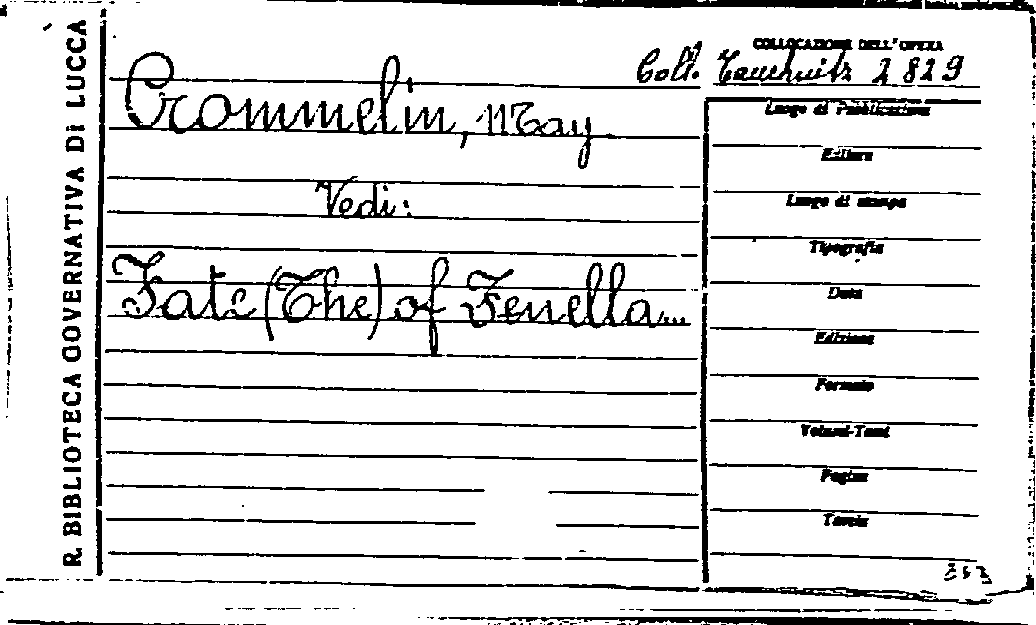 R. BIBLIOTECA GOVERNATIVA DI LUCCA
COLLOCAZIONE DELL'OPERA
Coll. Tauchnitz 2829
Crommelin, May.
Vedi:
Fate (The) of Fenella...
Luogo di Pubblicazione
Editore
Luogo di stampa
Tipografia
Data
Edizione
Formato
Volumi-Tomi
Pagine
Tavole